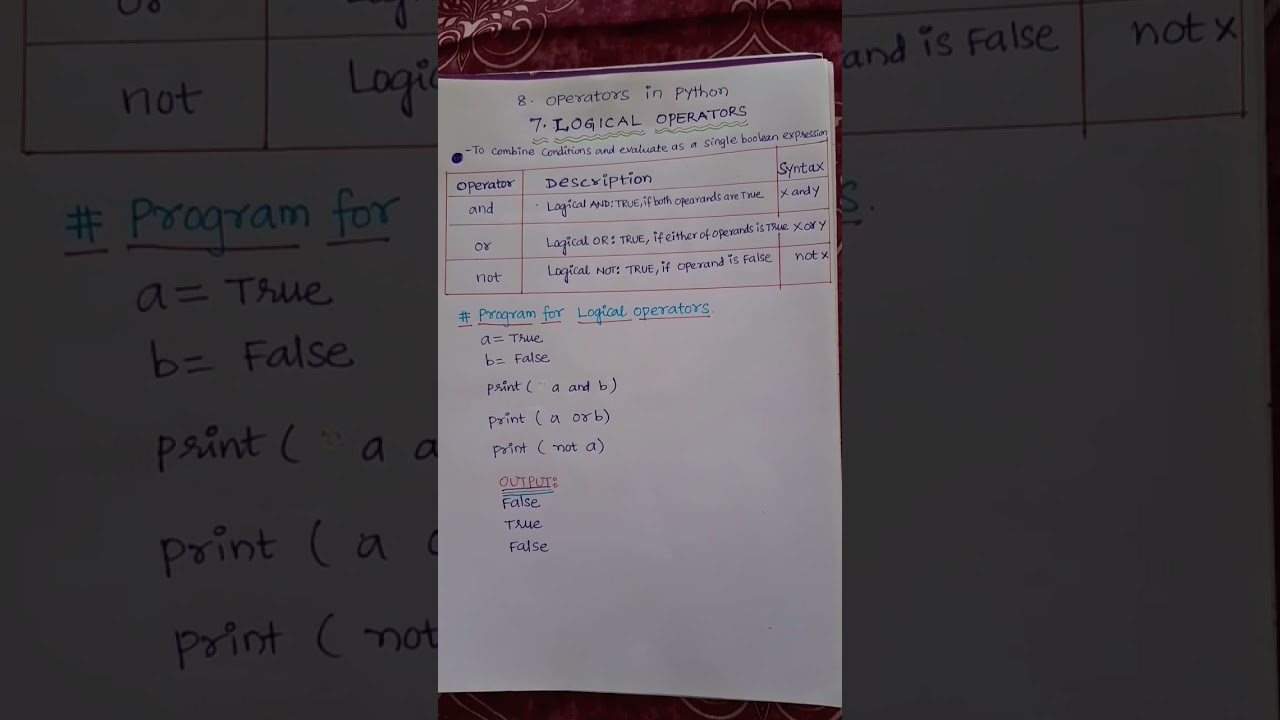 8. Operators in Python
7. LOGICAL OPERATORS
- To combine conditions and evaluate as a single boolean expression
Operator Description Syntax
and Logical AND: TRUE, if both opearands are True x and y
or Logical OR: TRUE, if either of operands is TRUE x or y
not Logical NOT: TRUE, if operand is False not x
# Program for Logical operators.
a= True
b= False
print ( a and b)
print ( a or b)
print ( not a)
OUTPUT:
False
True
False